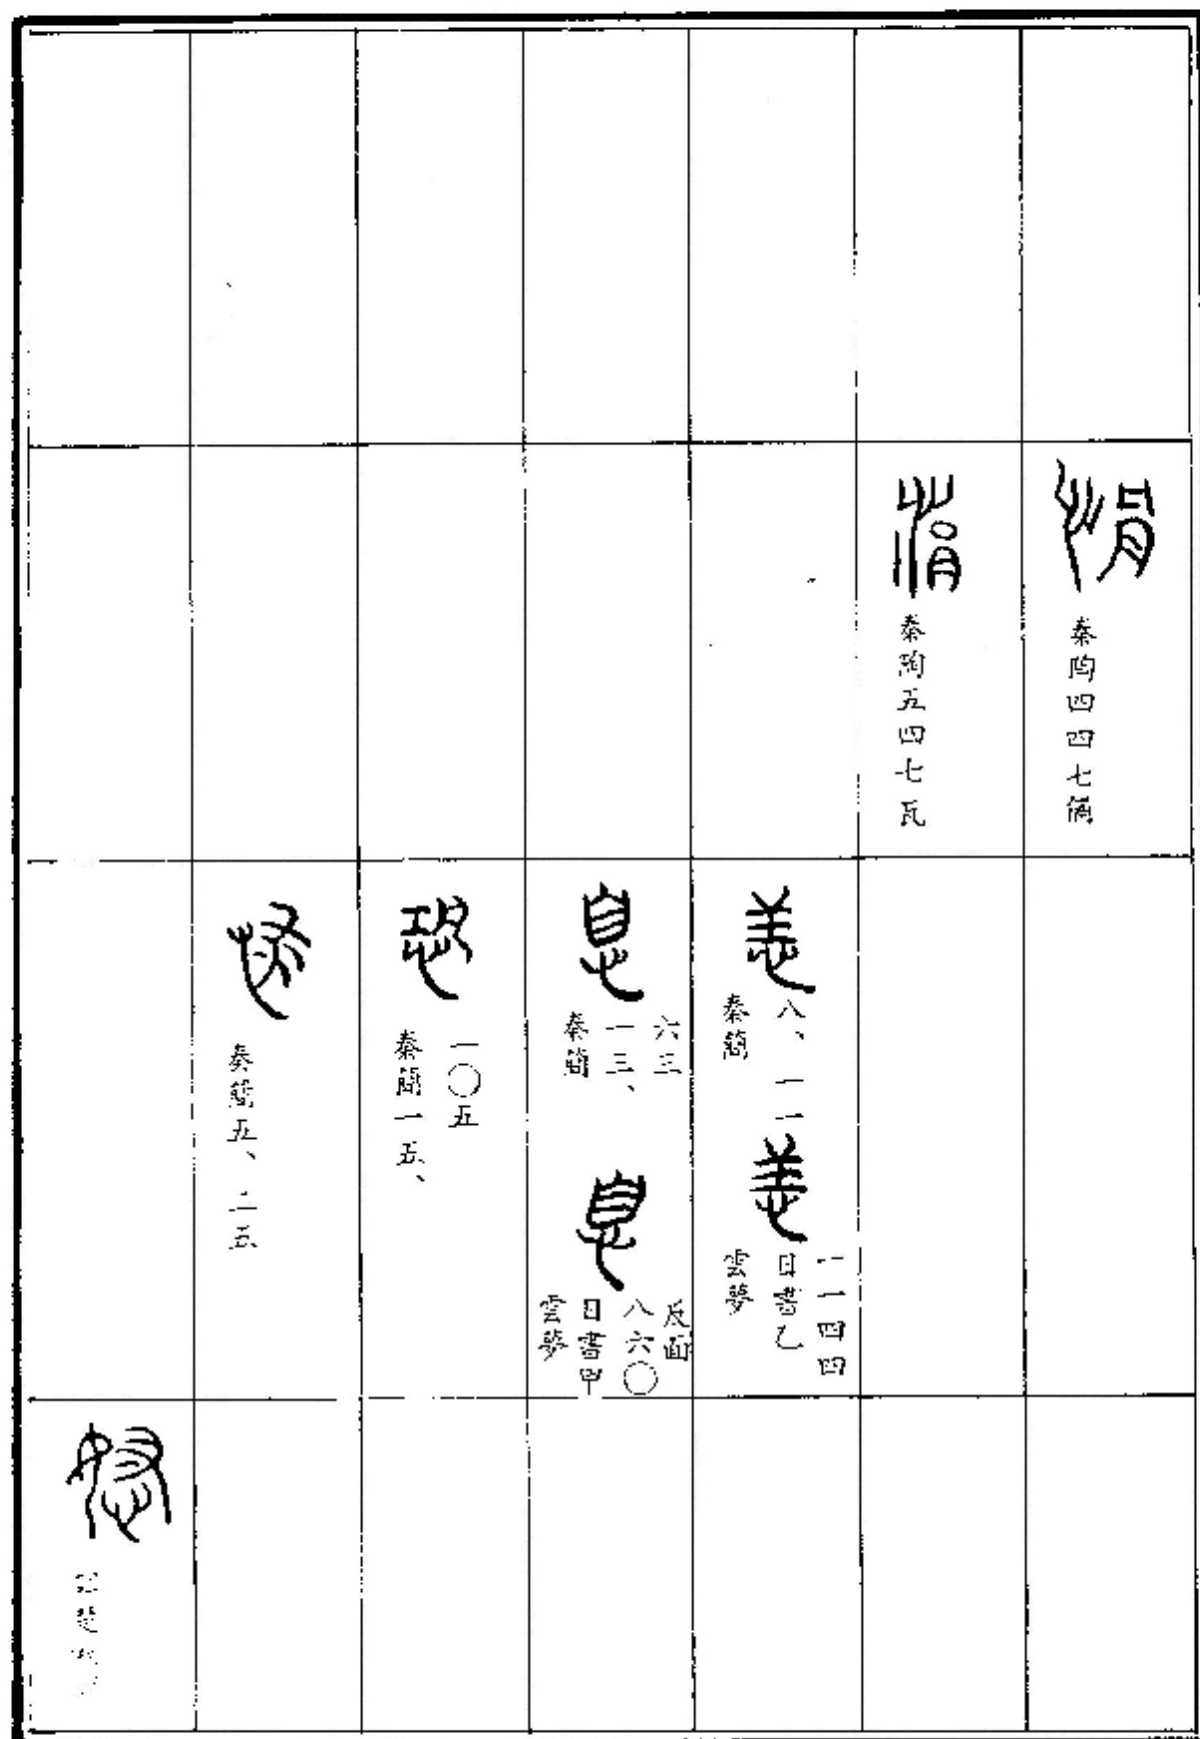 悁
秦陶四四七俑
悁
秦陶五四七瓦
恙
秦簡
八、一一
恙
雲夢
日書乙
一一四四
息
秦簡
一三、
六三
息
雲夢
日書甲
八六〇
反面
恐
秦簡一五、
一〇五
秦簡五、二五